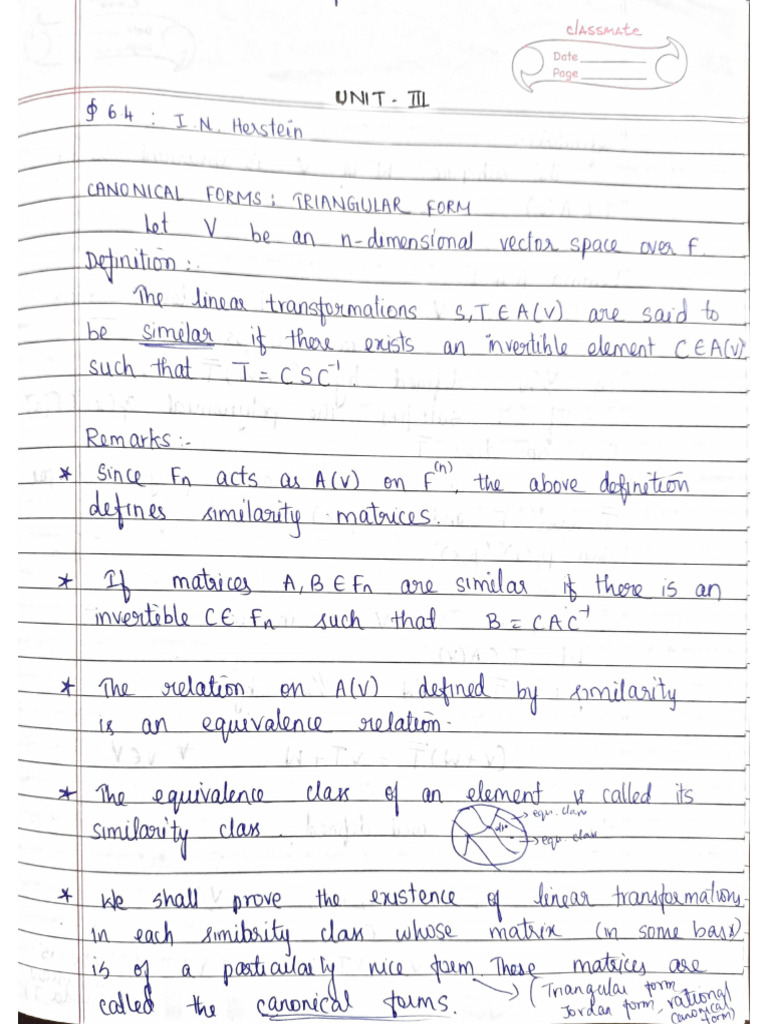 classmate
Date
Page
UNIT - III
§ 6.4 : I. N. Herstein
CANONICAL FORMS : TRIANGULAR FORM
Let V be an n-dimensional vector space over F.
Definition :-
The linear transformations S, T ∈ A(V) are said to
be similar if there exists an invertible element C ∈ A(V)
such that T = CSC⁻¹.
Remarks :-
* Since Fn acts as A(V) on F⁽ⁿ⁾, the above definition
defines similarity matrices.
* If matrices A, B ∈ Fn are similar if there is an
invertible C ∈ Fn such that B = CAC⁻¹
* The relation on A(V) defined by similarity
is an equivalence relation.
* The equivalence class of an element is called its
similarity class.
equ. class
equ. class
* We shall prove the existence of linear transformations
in each similarity class whose matrix (in some basis)
is of a particularity nice form. These matrices are
called the canonical forms.
(Triangular form
Jordan form, rational
canonical form)